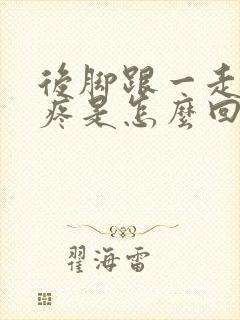 後脚跟一走
疼是怎麼回
翟海雷